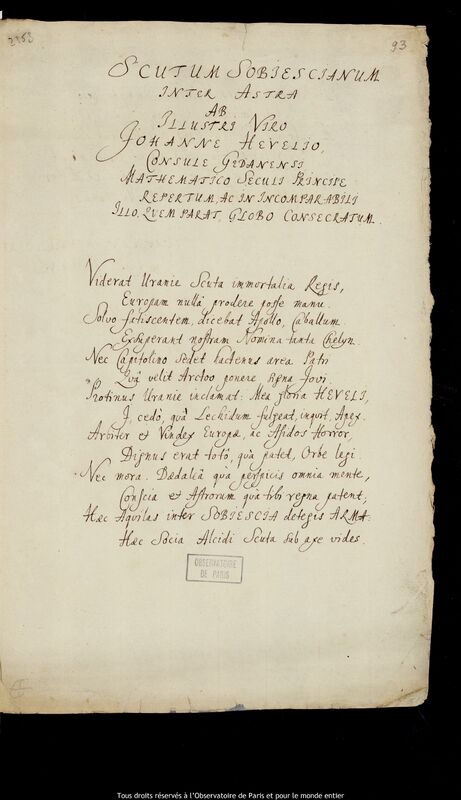 2253
93
SCUTUM SOBIESCIANUM
INTER ASTRA
AB
ILLUSTRI VIRO
JOHANNE HEVELIO,
CONSULE GEDANENSI
MATHEMATICO SECULI PRINCIPE
REPERTUM, AC IN INCOMPARABILI
ILLO, QVEM PARAT, GLOBO CONSECRATUM.
Viderat Uranie Scuta immortalia Regis,
Europam nullâ prodere posse manu.
Solvo fatiscentem, dicebat Apollo, Caballum.
Exsuperant nostram Nomina tanta Chelyn.
Nec Capitolino sedet hactenus area Patri
Quâ velit Arctoo ponere Jovi.
Protinus Uranie inclamat: Mea gloria HEVELI,
I, cedo, quà Lechidum fulgeat, inquit, Apex.
Arbiter et Vindex Europæ, ac Asidos Horror,
Dignus erat toto, quà patet, Orbe legi.
Nec mora. Dædaleâ quà perspicis omnia mente,
Conscia et Astrorum quà tibi regna patent;
Hæc Aquilas inter SOBIESCIA detegis ARMA:
Hæc Socia Alcidi Scuta sub axe vides.
OBSERVATOIRE
DE PARIS
Tous droits réservés à l'Observatoire de Paris et pour le monde entier